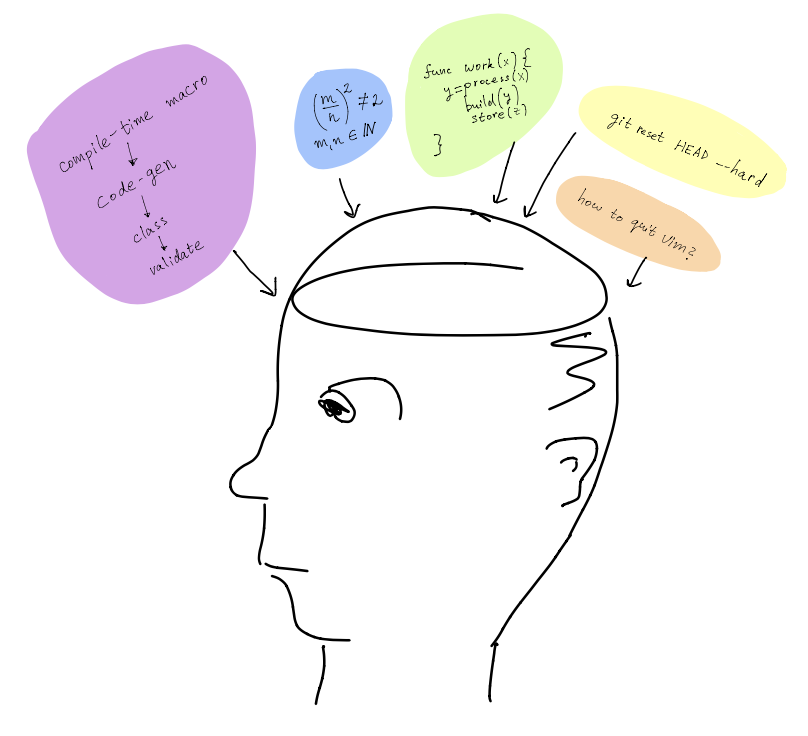 compile-time macro
↓
code-gen
↓
class
↓
validate
(m/n)² ≠ 2
m,n ∈ ℕ
func work(x) {
y=process(x)
build(y)
store(z)
}
git reset HEAD --hard
how to quit vim?